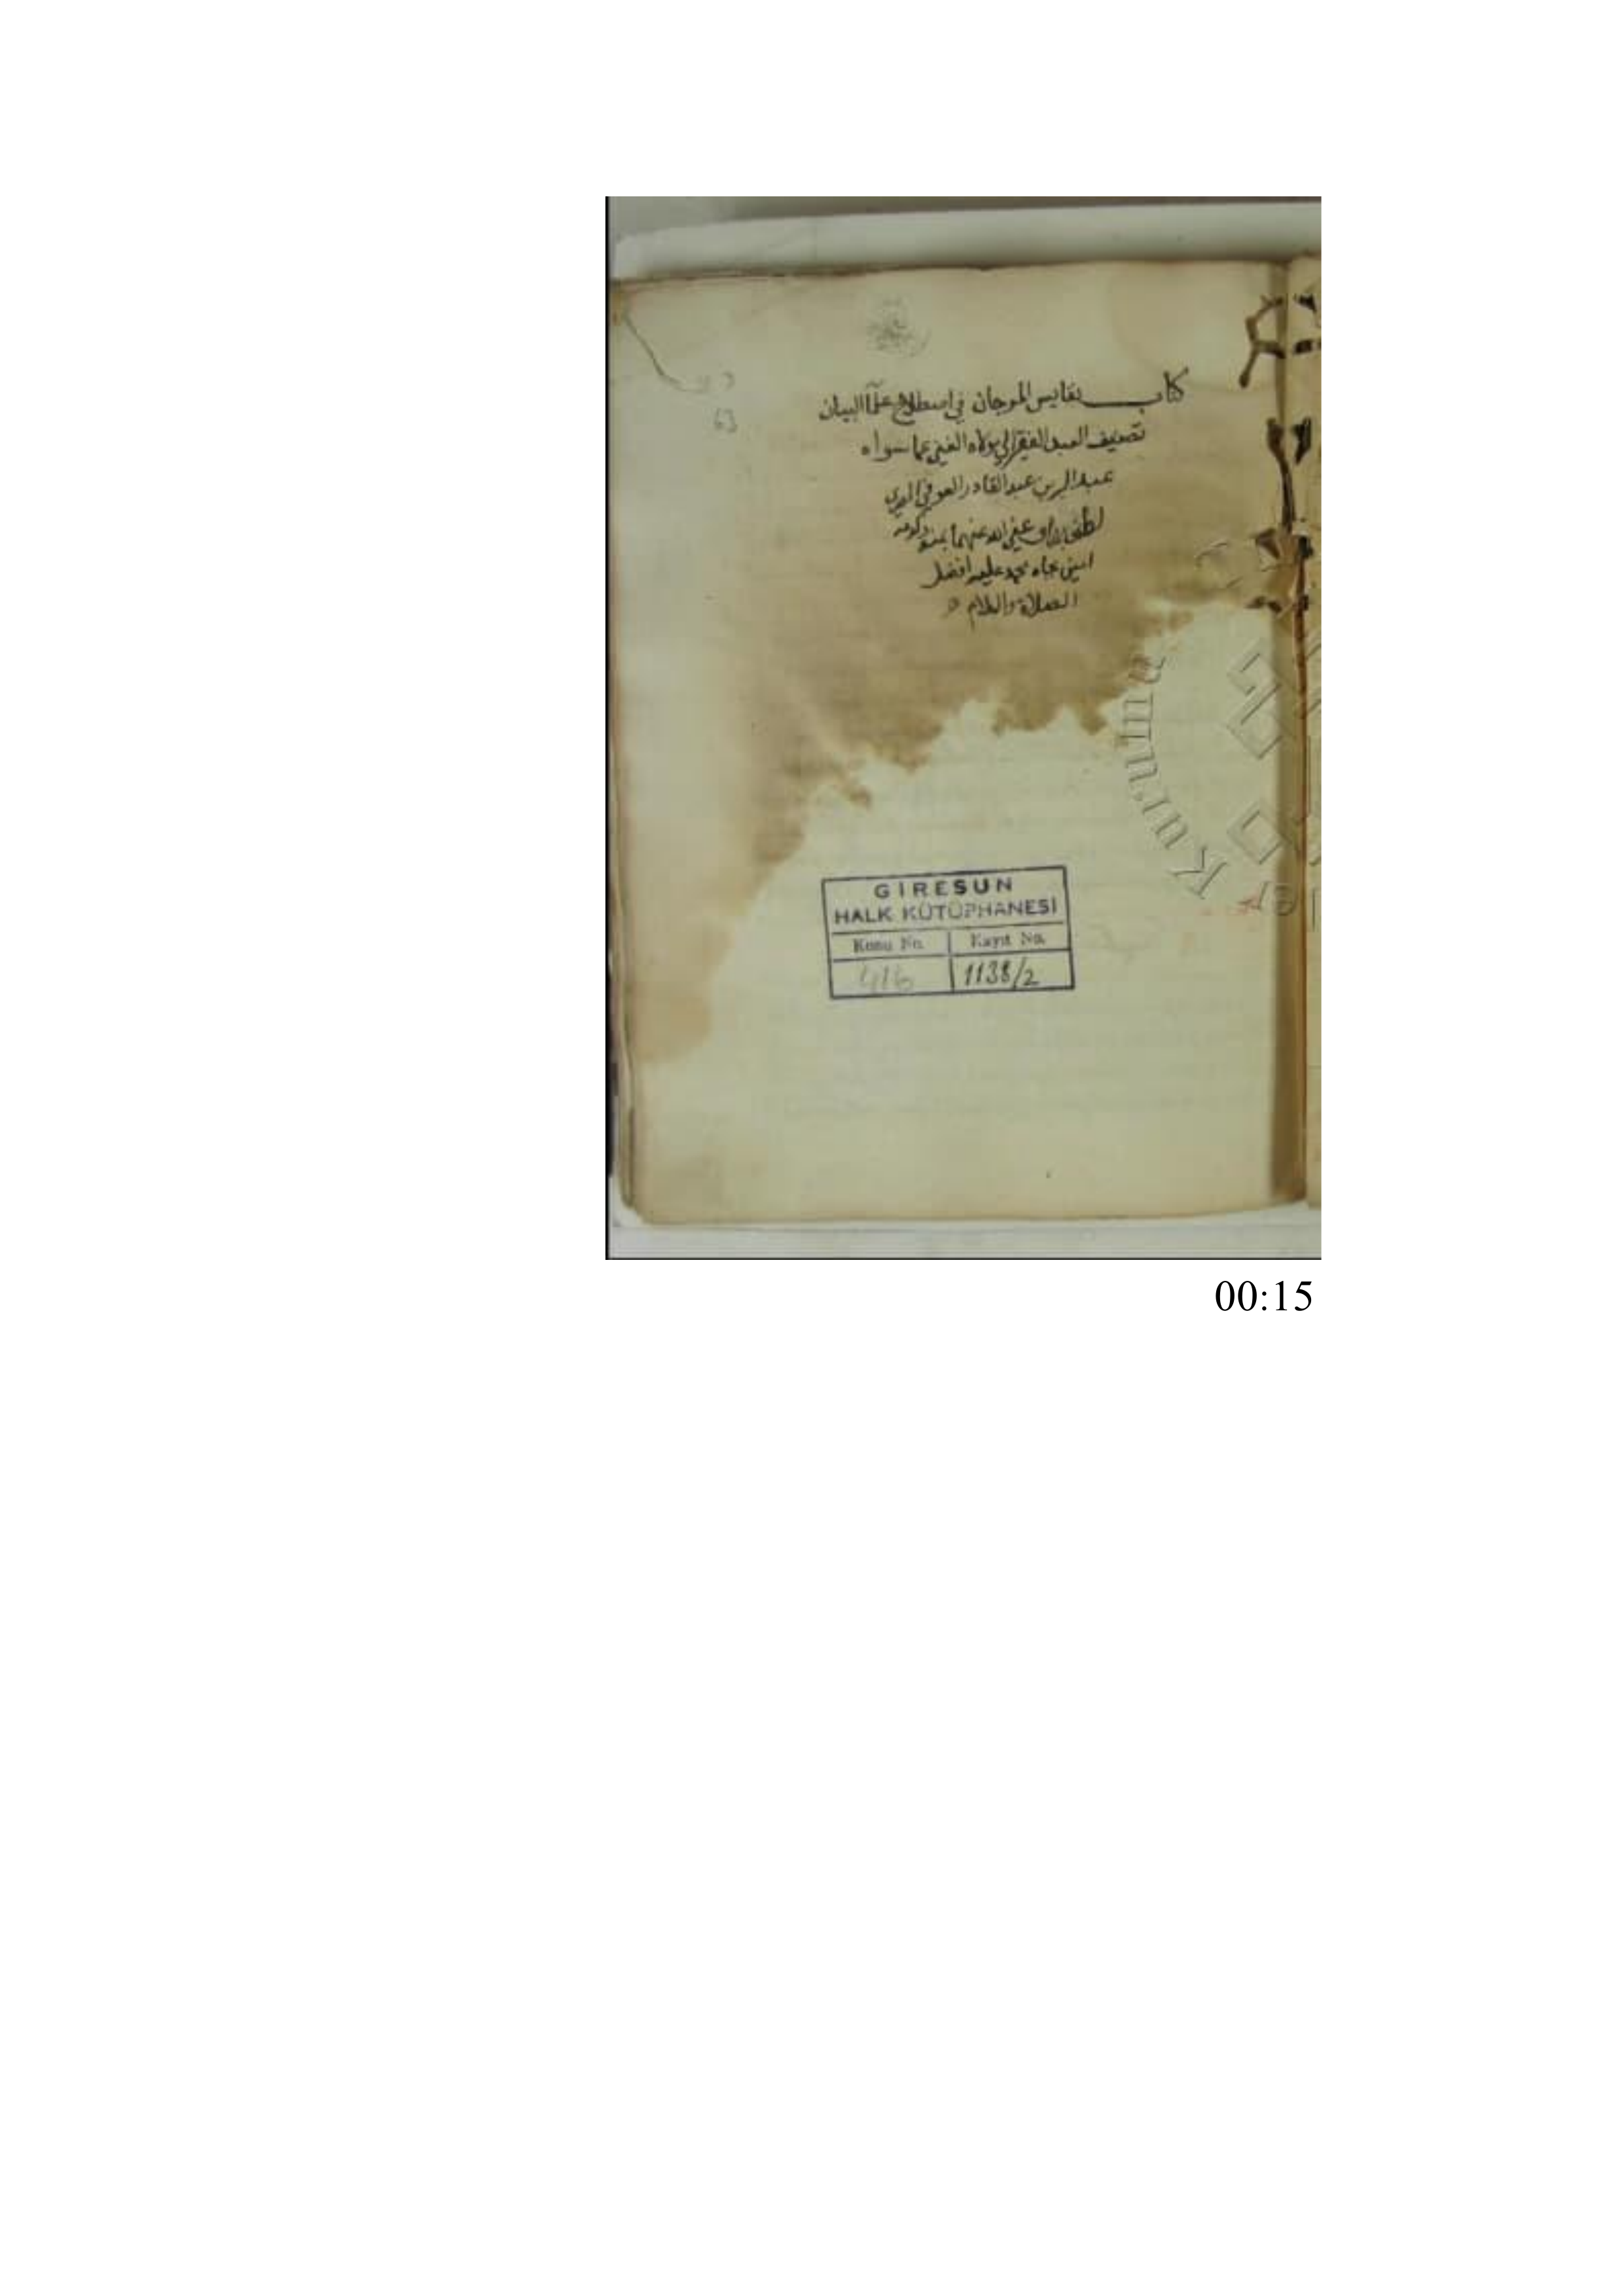 63
كتاب نفايس المرجان في اصطلاح علمآ البيان
تصنيف العبد الفقير الي مولاه الغني عما سواه
عبد البر بن عبد القادر العوفي
لطف عفي الله عنهما بمنه وكرمه
امين بجاه محمد عليه افضل
الصلاة والسلام
GİRESUN
HALK KÜTÜPHANESİ
Konu No. Kayıt No.
416 1138/2
Kurumu
00:15